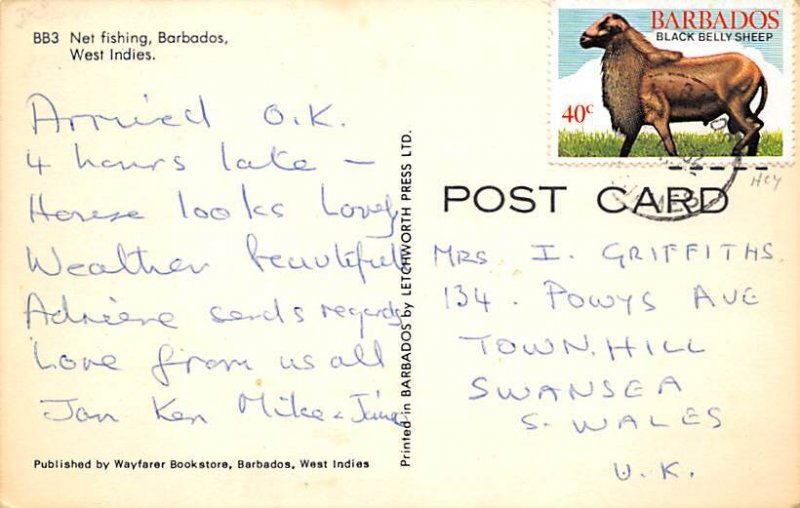 BB3 Net fishing, Barbados,
West Indies.
Arrived O.K.
4 hours late –
House looks lovely
Weather beautiful
Adriene sends regards
Love from us all
Jan Ken Mike &
Published by Wayfarer Bookstore, Barbados, West Indies
Printed in BARBADOS by LETCHWORTH PRESS LTD.
BARBADOS
BLACK BELLY SHEEP
40c
POST CARD
MRS I. GRIFFITHS.
134. POWYS AVE
TOWN.HILL
SWANSEA
S. WALES
U.K.